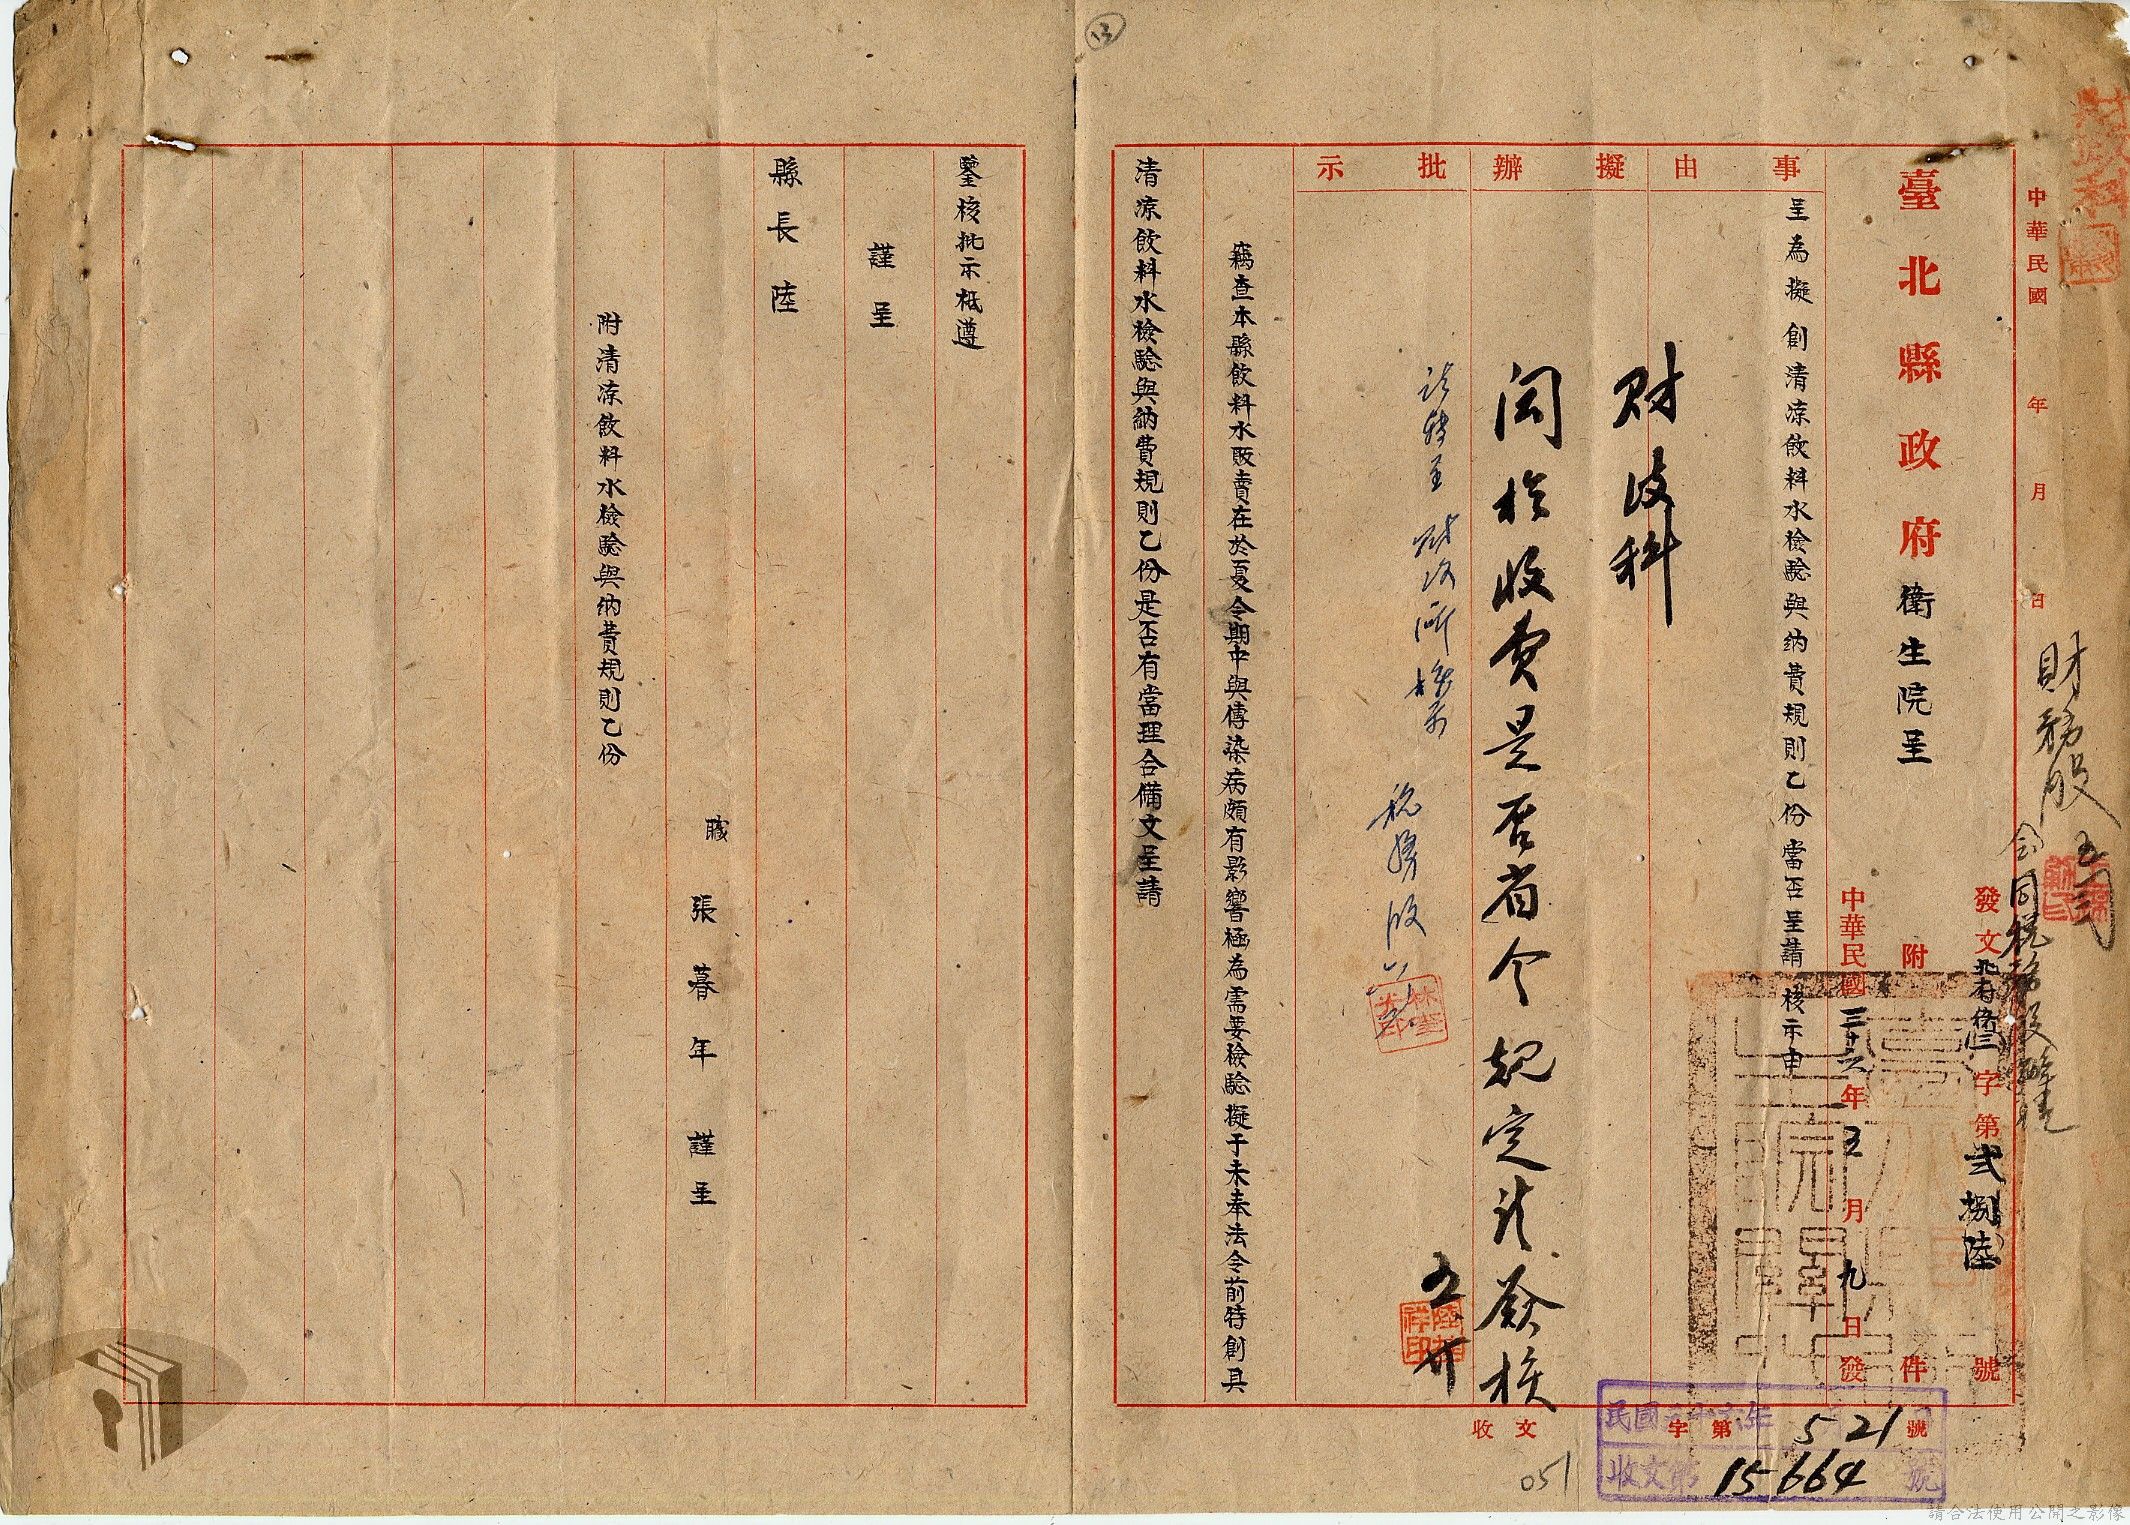 財政科
中華民國 年 月 日
財務股
會同稅務股辦理
臺北縣政府衛生院呈 附 件
發文北府衛三字第貳捌陸號
中華民國三十六年五月九日發
事由
擬辦
批示
呈為擬創清涼飲料水檢驗與納費規則乙份當否呈請核示由
財政科
関於收費是否省令規定請簽核
五 廿
請轉呈財政所核示
稅務股
竊查本縣飲料水販賣在於夏令期中與傳染病頗有影響極為需要檢驗擬于未奉法令前特創具
清涼飲料水檢驗與納費規則乙份是否有當理合備文呈請
收文 字第 號
民國三十六年 5 21
收文第 15664 號
051
鑒核批示祗遵
謹呈
縣長陸
職 張暮年 謹呈
附清涼飲料水檢驗與納費規則乙份
請合法使用公開之影像